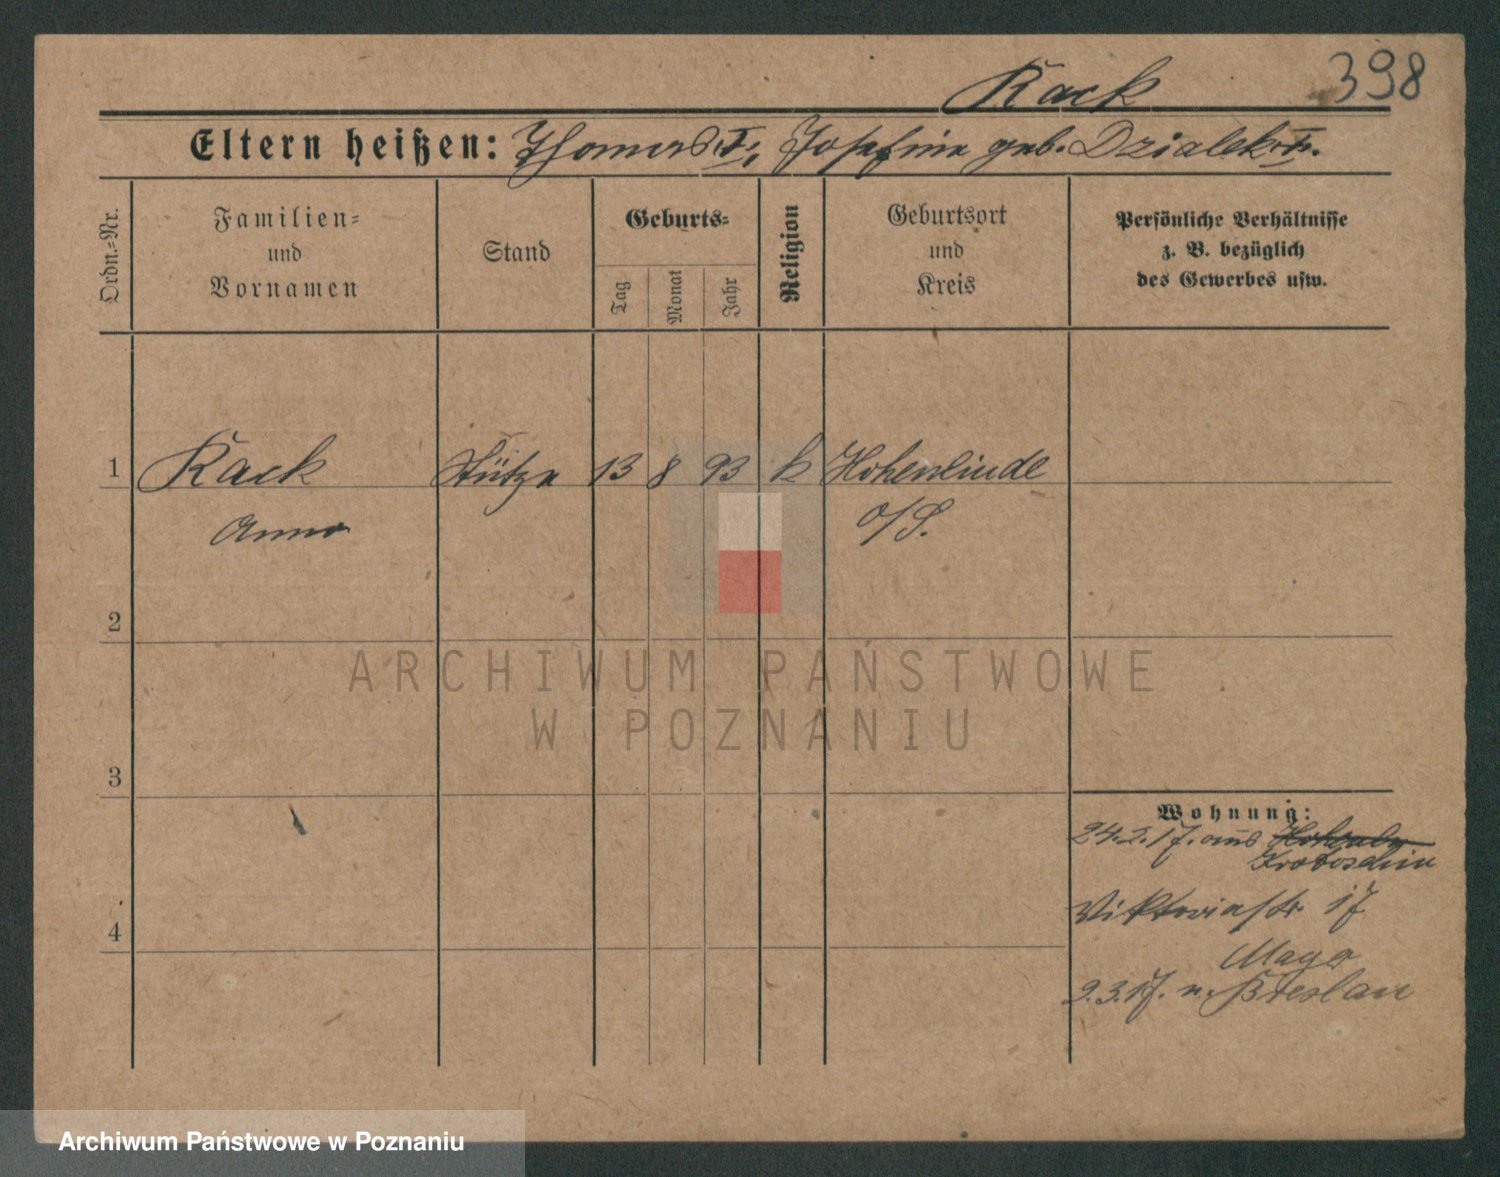 Kack
398
Eltern heißen: Thomas, Josefine geb. Dzialek.
Ordn.=Nr.
Familien=
und
Vornamen
Stand
Geburts=
Tag
Monat
Jahr
Religion
Geburtsort
und
Kreis
Persönliche Verhältnisse
z. B. bezüglich
des Gewerbes usw.
1 Kack Stütze 13 8 93 k Hohenlinde
Anna O/S.
2
3
4
Wohnung:
24.2.17. aus
Krotoschin
Viktoriastr 17
Mayer
9.3.17. n. Breslau
ARCHIWUM PAŃSTWOWE
W POZNANIU
Archiwum Państwowe w Poznaniu